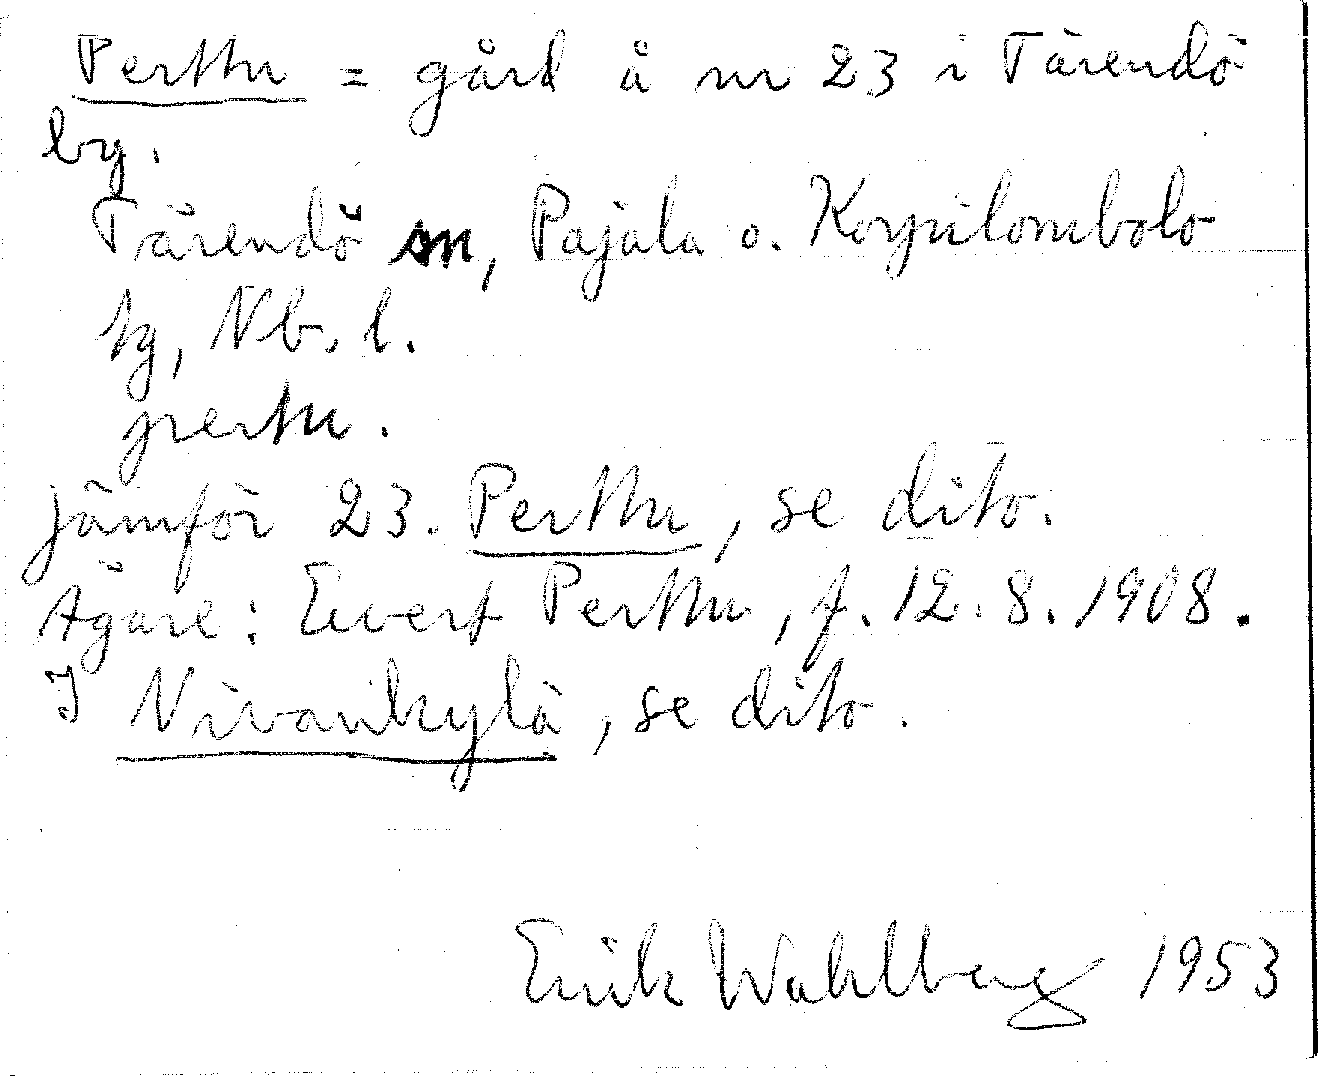 Perttu = gård å nr 23 i Tärendö
by.
Tärendö sn, Pajala o. Korpilombolo
tg, Nb. l.
perttu.
jämför 23. Perttu, se dito.
Ägare: Evert Perttu, f. 12.8.1908.
I Nivankylä, se dito.
Erik Wahlberg 1953